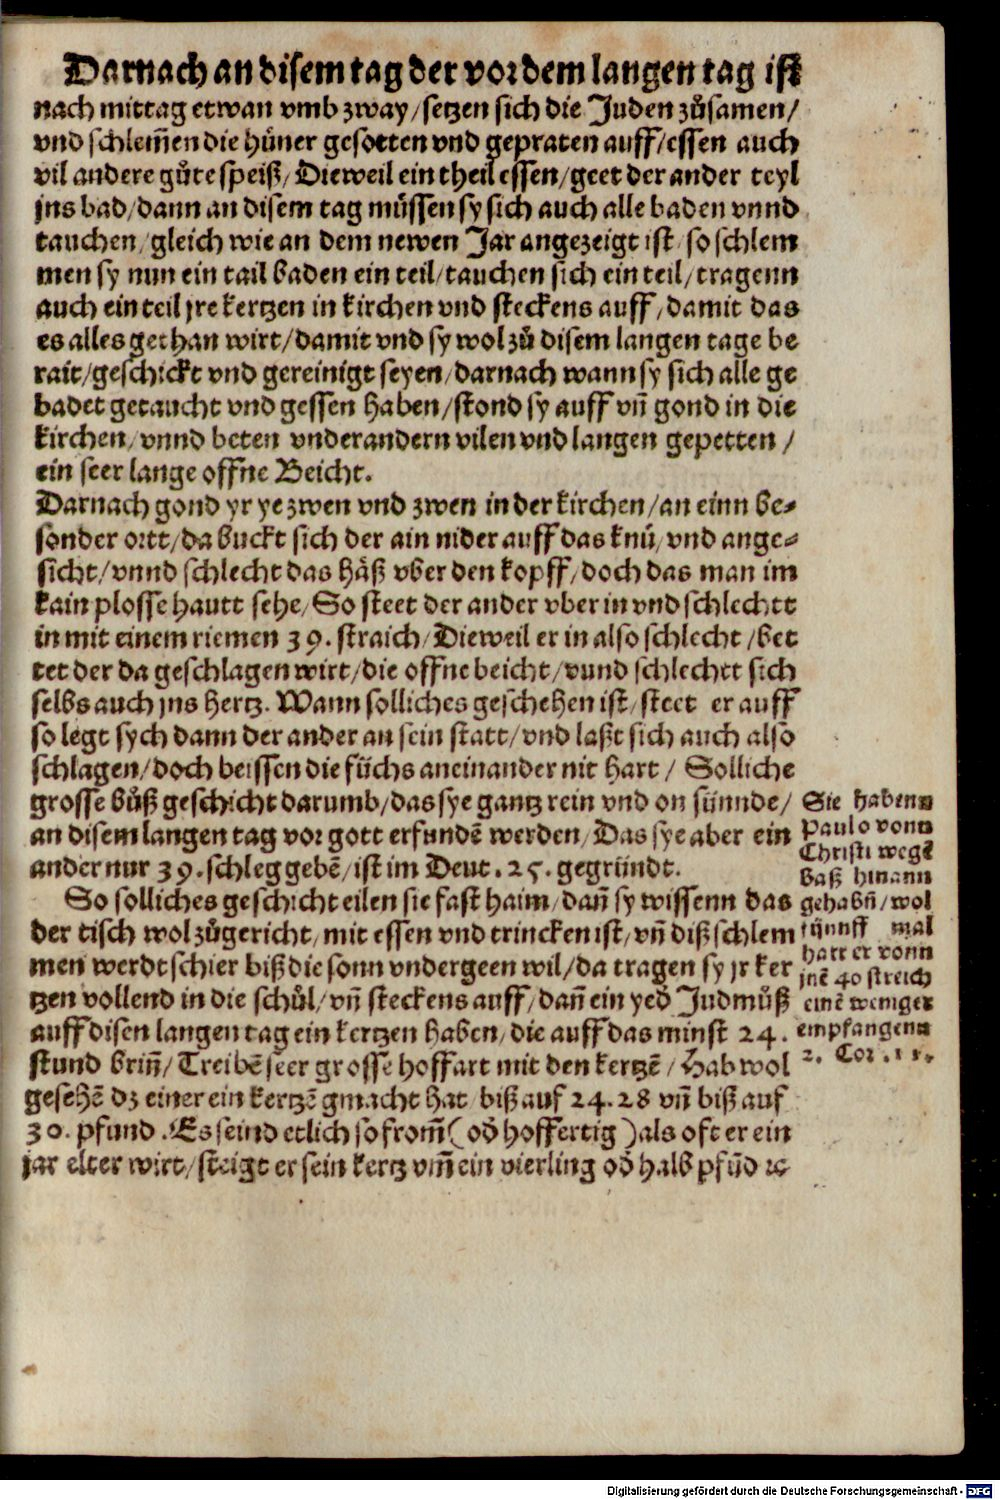 Darnach an disem tag der vor dem langen tag ist
nach mittag etwan vmb zway/setzen sich die Juden zůsamen/
vnd schlem̃en die hüner gesotten vnd gepraten auff/essen auch
vil andere gůte speiß/Dieweil ein theil essen/geet der ander teyl
jns bad/dann an disem tag müssen sy sich auch alle baden vnnd
tauchen/gleich wie an dem newen Jar angezeigt ist/so schlem
men sy nun ein tail baden ein teil/tauchen sich ein teil/tragenn
auch ein teil jre kertzen in kirchen vnd steckens auff/damit das
es alles gethan wirt/damit vnd sy wol zů disem langen tage be
rait/geschickt vnd gereinigt seyen/darnach wann sy sich alle ge
badet getaucht vnd gessen haben/stond sy auff vñ gond in die
kirchen/vnnd beten vnderandern vilen vnd langen gepetten/
ein seer lange offne Beicht.
Darnach gond yr ye zwen vnd zwen in der kirchen/an einn be-
sonder ortt/da buckt sich der ain nider auff das knü/vnd ange-
sicht/vnnd schlecht das häß vber den kopff/doch das man im
kain plosse hautt sehe/So steet der ander vber in vnd schlechtt
in mit einem riemen 39. straich/Dieweil er in also schlecht/bet
tet der da geschlagen wirt/die offne beicht/vnnd schlechtt sich
selbs auch jns hertz. Wann solliches geschehen ist/steet er auff
so legt sych dann der ander an sein statt/vnd laßt sich auch also
schlagen/doch beissen die füchs aneinander nit hart/ Solliche
grosse bůß geschicht darumb/das sye gantz rein vnd on sünnde/
an disem langen tag vor gott erfundē werden/Das sye aber ein
ander nur 39. schleg gebē/ist im Deut. 25. gegründt.
So solliches geschicht eilen sie fast haim/dañ sy wissenn das
der tisch wol zůgericht/mit essen vnd trincken ist/vñ diß schlem
men werdt schier biß die sonn vndergeen wil/da tragen sy jr ker
tzen vollend in die schůl/vñ steckens auff/dañ ein yed̄ Jud můß
auff disen langen tag ein kertzen haben/die auff das minst 24.
stund briñ/Treibē seer grosse hoffart mit den kertzē/Hab wol
gesehē dz einer ein kertzē gmacht hat/biß auf 24.28 vñ biß auf
30. pfund. Es seind etlich so from̃(od̄ hoffertig)als oft er ein
jar elter wirt/steigt er sein kertz vm̃ ein vierling od̄ halb pfūd ꝛc
Sie habenn
Paulo vonn
Christi wegē
baß hinann
gehabñ/wol
fünnff mal
hatt er vonn
jnē 40 streich
einē weniger
empfangenn
2. Cor. 11.
Digitalisierung gefördert durch die Deutsche Forschungsgemeinschaft - DFG